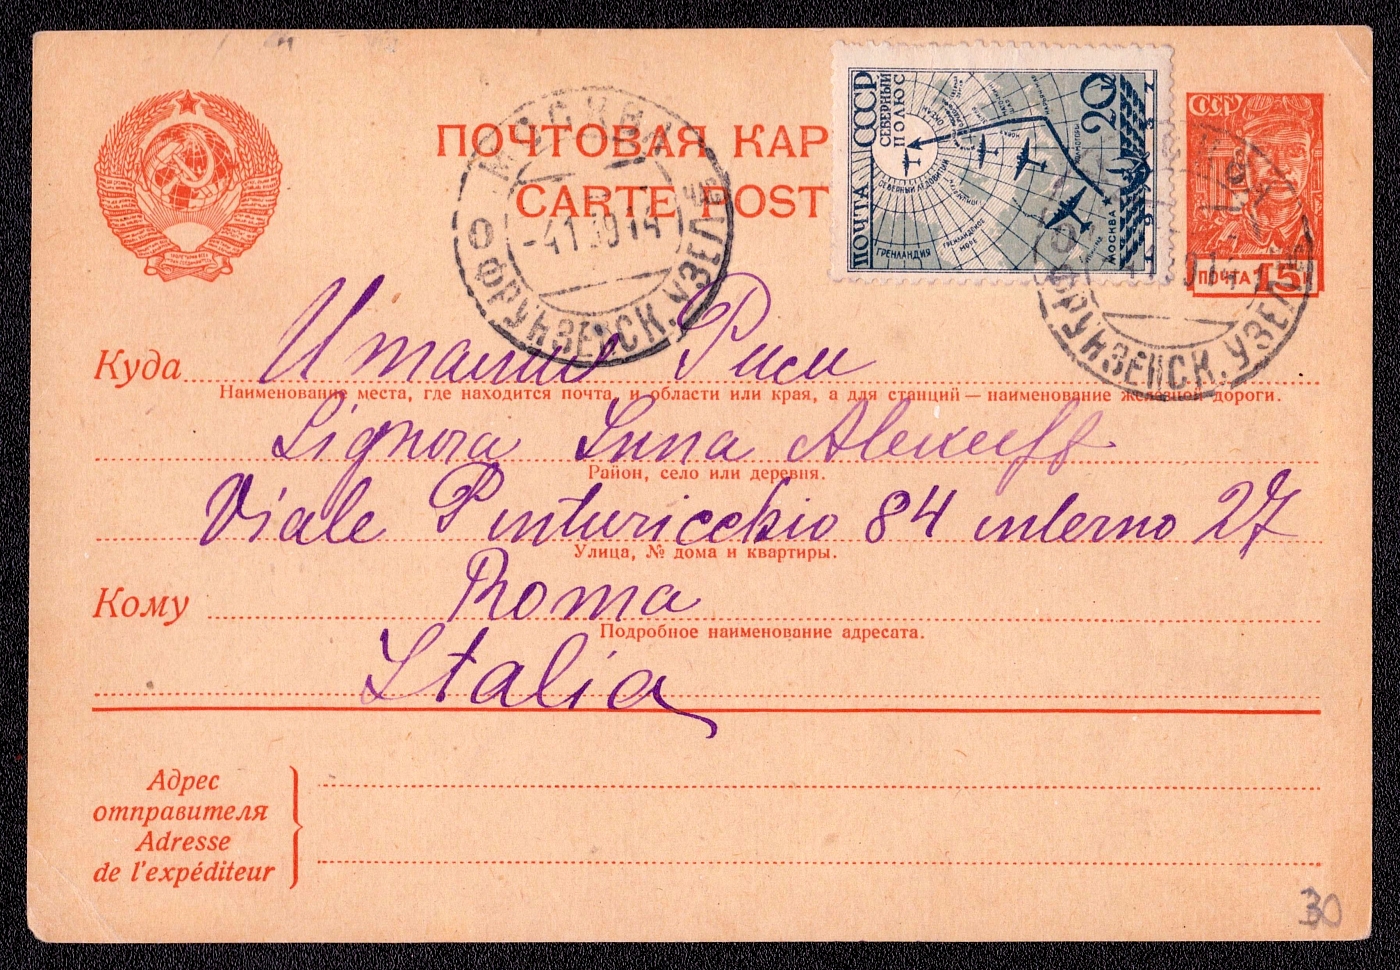 ПОЧТОВАЯ КАР
CARTE POST
МОСКВА
-4 1 39 14
ФРУНЗЕНСК. УЗЕЛ
ПОЧТА СССР
СЕВЕРНЫЙ ПОЛЮС
20
СЕВЕРНЫЙ ЛЕДОВИТЫЙ
ГРЕНЛАНДСКОЕ МОРЕ
ГРЕНЛАНДИЯ
МОСКВА
СССР
ПОЧТА 15 К
ФРУНЗЕНСК. УЗЕЛ
Куда Италия Рим
Наименование места, где находится почта, и области или края, а для станций — наименование железной дороги.
Signora Inna Alexeeff
Район, село или деревня.
Viale Pinturicchio 84 interno 27
Улица, № дома и квартиры.
Кому Roma
Подробное наименование адресата.
Italia
Адрес
отправителя
Adresse
de l'expéditeur
30